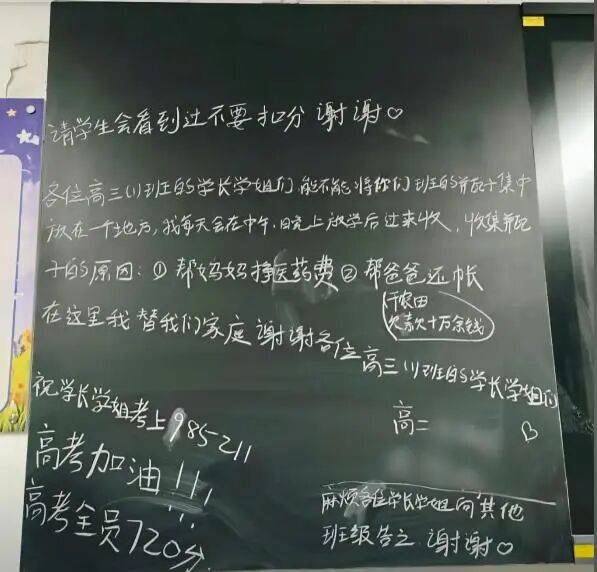 请学生会看到过不要扣分 谢谢♡
各位高三(1)班的学长学姐们,能不能将你们班的井瓦十集中
放在一个地方,我每天会在中午、晚上放学后过来收,收集井瓦
十的原因:①帮妈妈挣医药费②帮爸爸还帐
农田
欠款十万余钱
在这里我替我们家庭谢谢各位高三(1)班的学长学姐们
高二
祝学长学姐考上985211
高考加油!!!
高考全员720分
麻烦各位学长学姐向其他
班级告之 谢谢♡